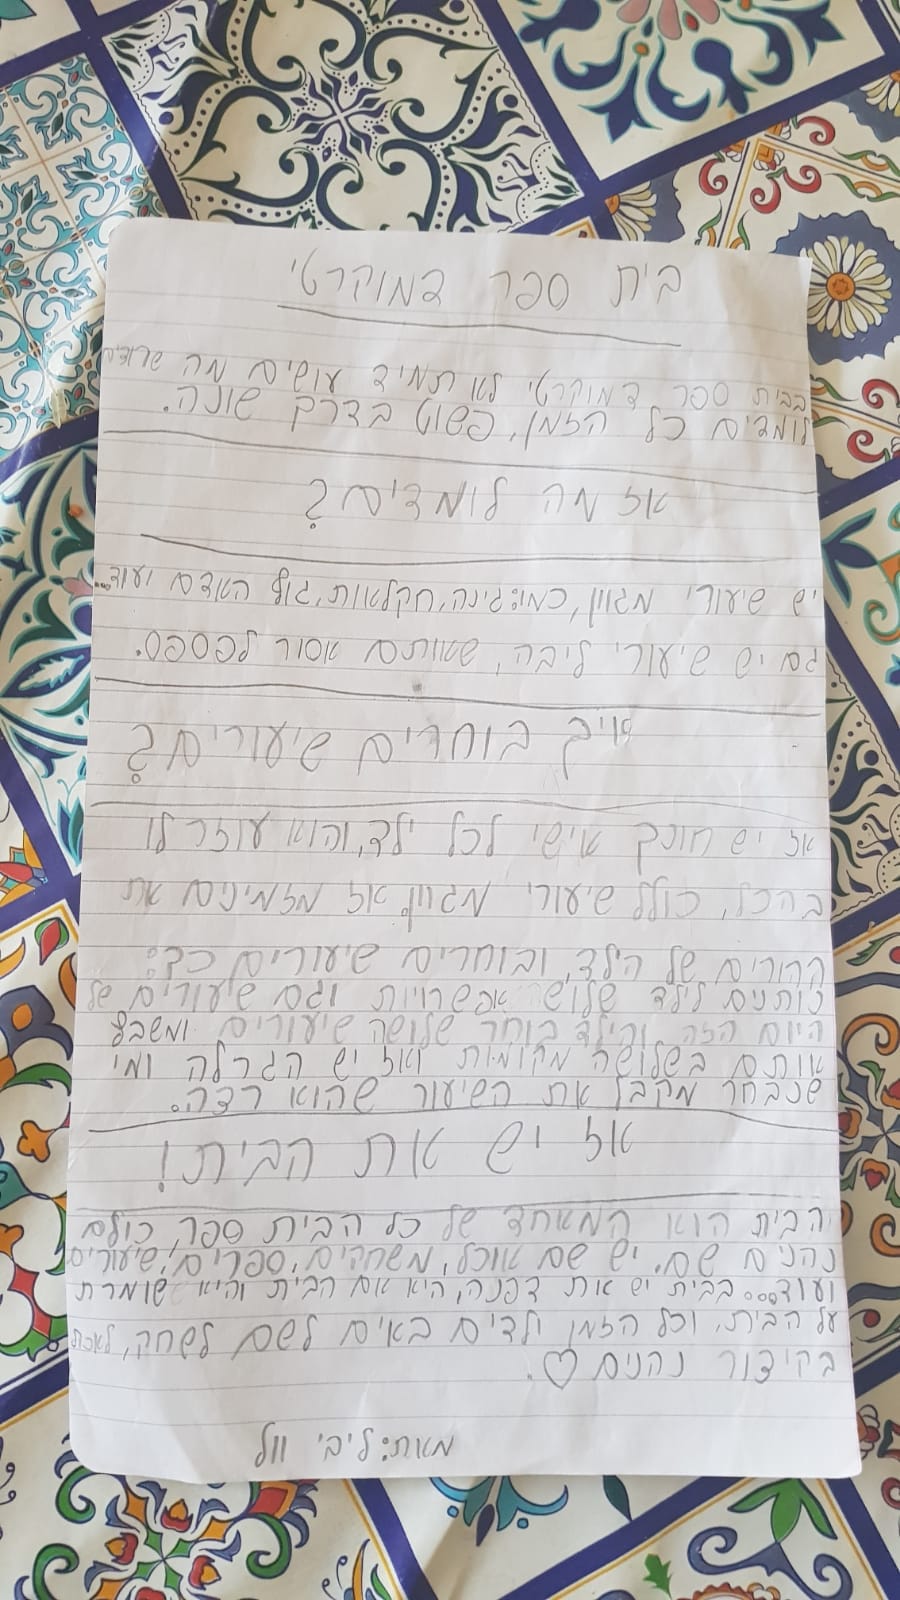 בית ספר דמוקרטי
בבית ספר דמוקרטי לא תמיד עושים מה שרוצים
לומדים כל הזמן, פשוט בדרך שונה.
אז מה לומדים?
יש שיעורי מגוון, כמו: גינה, חקלאות, גוף האדם ועוד...
גם יש שיעורי ליבה, שאותם אסור לפספס.
איך בוחרים שיעורים?
אז יש חונך אישי לכל ילד, והוא עוזר לו
בהכל, כולל שיעורי מגוון אז מזמינים את
ההורים של הילד, ובוחרים שיעורים כך:
נותנים לילד שלושה אפשרויות וגם שיעורים של
היום הזה והילד בוחר שלושה שיעורים ומשבץ
אותם בשלושה מקומות ואז יש הגרלה ומי
שנבחר מקבל את השיעור שהוא רצה.
אז יש את הבית!
הבית הוא המאחד של כל הבית ספר, כולם
נהנים שם. יש שם אוכל, משחקים, ספרים, שיעורים
ועוד... בבית יש את דפנה, היא אם הבית והיא שומרת
על הבית, וכל הזמן ילדים באים לשם לשחק,
בקיצור נהנים ♡.
מאת: ליבי וול